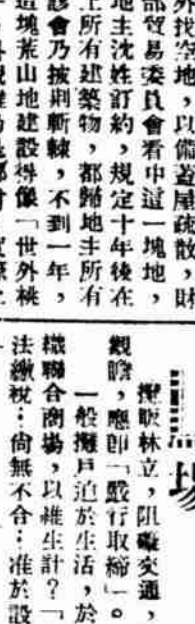 外找空地，以備蓋屋疏散，財
部貿易委員會看中這一塊地，
地主沈姓訂約，規定十年後在
上所有建築物，都歸地主所有
診會乃披荆斬棘，不到一年，
這塊荒山地建設得像「世外桃
場
攤販林立，阻礙交通，
觀瞻，應即「嚴行取締」。
一般攤戶迫於生活，於
織聯合商場，以維生計？「
法繳稅：尚無不合：准於設